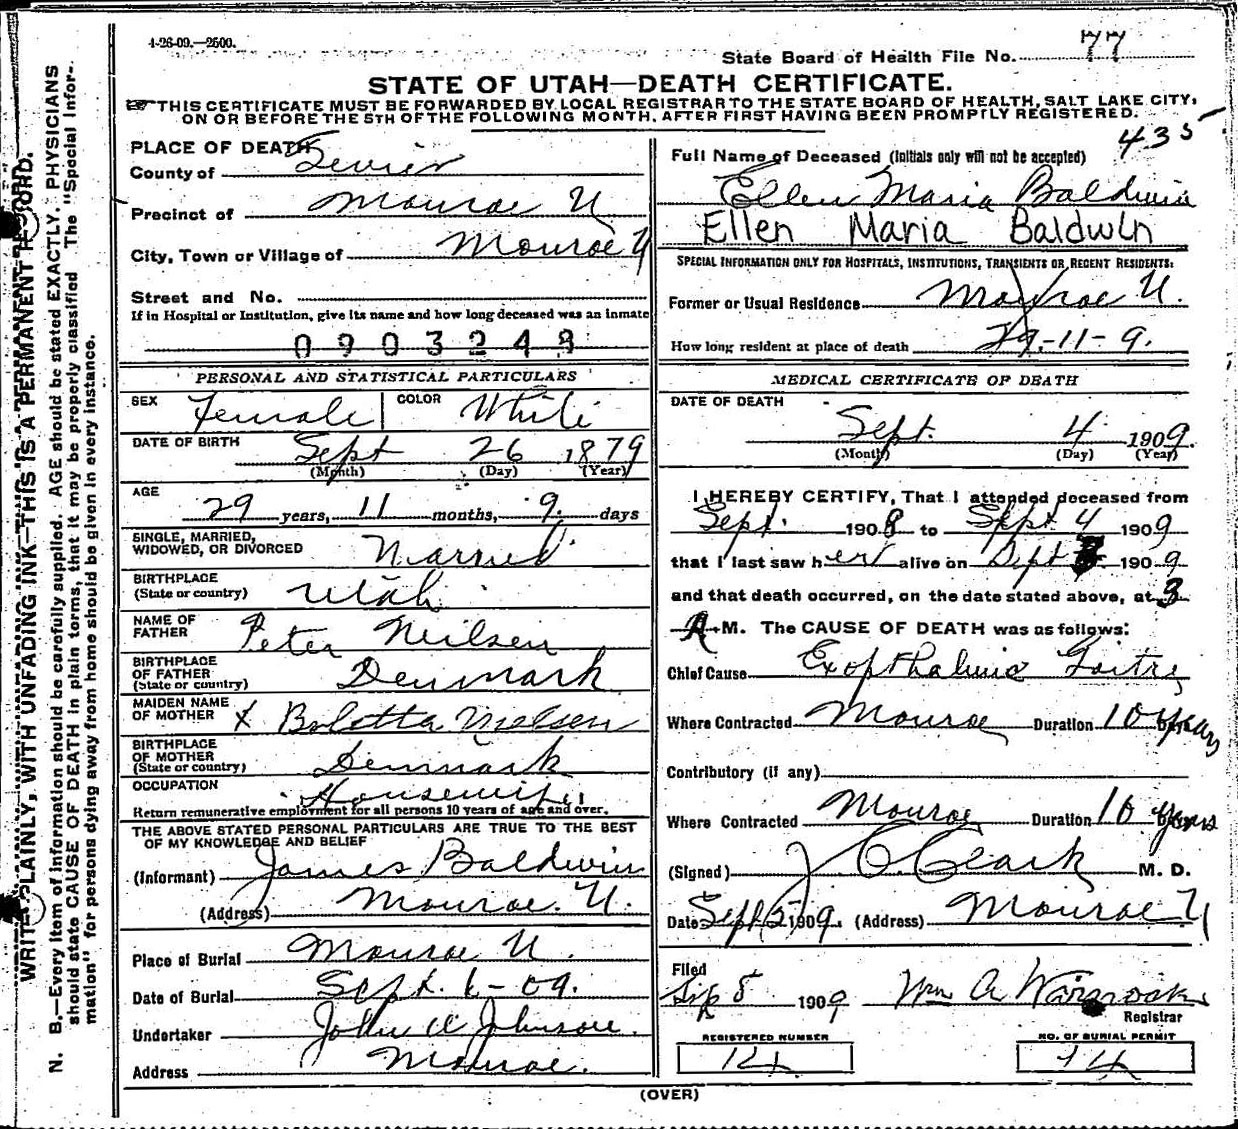 4-26-09.—2500.
State Board of Health File No. 77
STATE OF UTAH—DEATH CERTIFICATE.
THIS CERTIFICATE MUST BE FORWARDED BY LOCAL REGISTRAR TO THE STATE BOARD OF HEALTH, SALT LAKE CITY,
ON OR BEFORE THE 5TH OF THE FOLLOWING MONTH, AFTER FIRST HAVING BEEN PROMPTLY REGISTERED.
435
WRITE PLAINLY, WITH UNFADING INK—THIS IS A PERMANENT RECORD.
N. B.—Every item of information should be carefully supplied. AGE should be stated EXACTLY. PHYSICIANS
should state CAUSE OF DEATH in plain terms, that it may be properly classified. The "Special Infor-
mation" for persons dying away from home should be given in every instance.
PLACE OF DEATH
County of Sevier
Precinct of Monroe U
City, Town or Village of Monroe U
Street and No.
If in Hospital or Institution, give its name and how long deceased was an inmate
0903248
PERSONAL AND STATISTICAL PARTICULARS
SEX Female COLOR White
DATE OF BIRTH Sept 26 1879
(Month) (Day) (Year)
AGE
29 years, 11 months, 9 days
SINGLE, MARRIED,
WIDOWED, OR DIVORCED Married
BIRTHPLACE
(State or country) Utah
NAME OF
FATHER Peter Neilsen
BIRTHPLACE
OF FATHER
(State or country) Denmark
MAIDEN NAME
OF MOTHER X Bolotta Nielsen
BIRTHPLACE
OF MOTHER
(State or country) Denmark
OCCUPATION Housewife
Return remunerative employment for all persons 10 years of age and over.
THE ABOVE STATED PERSONAL PARTICULARS ARE TRUE TO THE BEST
OF MY KNOWLEDGE AND BELIEF
(Informant) James Baldwin
(Address) Monroe. U.
Place of Burial Monroe U.
Date of Burial Sept. 6-09.
Undertaker John W Johnson.
Address Monroe.
Full Name of Deceased (Initials only will not be accepted)
Ellen Maria Baldwin
Ellen Maria Baldwin
SPECIAL INFORMATION ONLY FOR HOSPITALS, INSTITUTIONS, TRANSIENTS OR RECENT RESIDENTS:
Former or Usual Residence Monroe U.
How long resident at place of death 29-11-9.
MEDICAL CERTIFICATE OF DEATH
DATE OF DEATH
Sept. 4 1909.
(Month) (Day) (Year)
I HEREBY CERTIFY, That I attended deceased from
Sept. 1908 to Sept 4 1909
that I last saw her alive on Sept 3 1909
and that death occurred, on the date stated above, at 3
A M. The CAUSE OF DEATH was as follows:
Chief Cause Exopthalmic Goitre,
Where Contracted Monroe Duration 10 years
Contributory (if any)
Where Contracted Monroe Duration 10 years
(Signed) J O. Clark M. D.
Date Sept 5 1909. (Address) Monroe U
Filed
Sep 8 1909 Wm A Warnock
Registrar
REGISTERED NUMBER
14
NO. OF BURIAL PERMIT
14
(OVER)